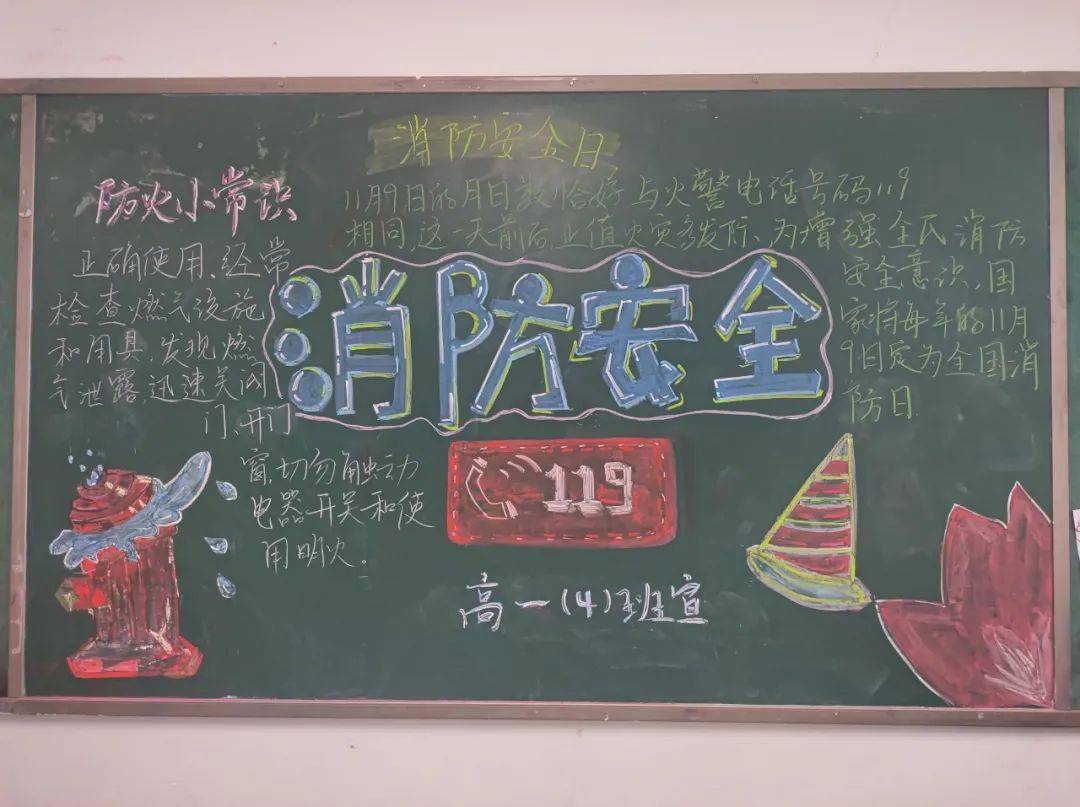 消防安全日
11月9日的月日数恰好与火警电话号码119
相同,这一天前后,正值火灾多发际、为增强全民消防
安全意识,国
家将每年的11月
9日定为全国消
防日.
防火小常识
正确使用、经常
检查燃气设施
和用具,发现燃
气泄露迅速关闭
门、开门
窗,切勿触动
电器开关和使
用明火。
消防安全
119
高一(4)班宣